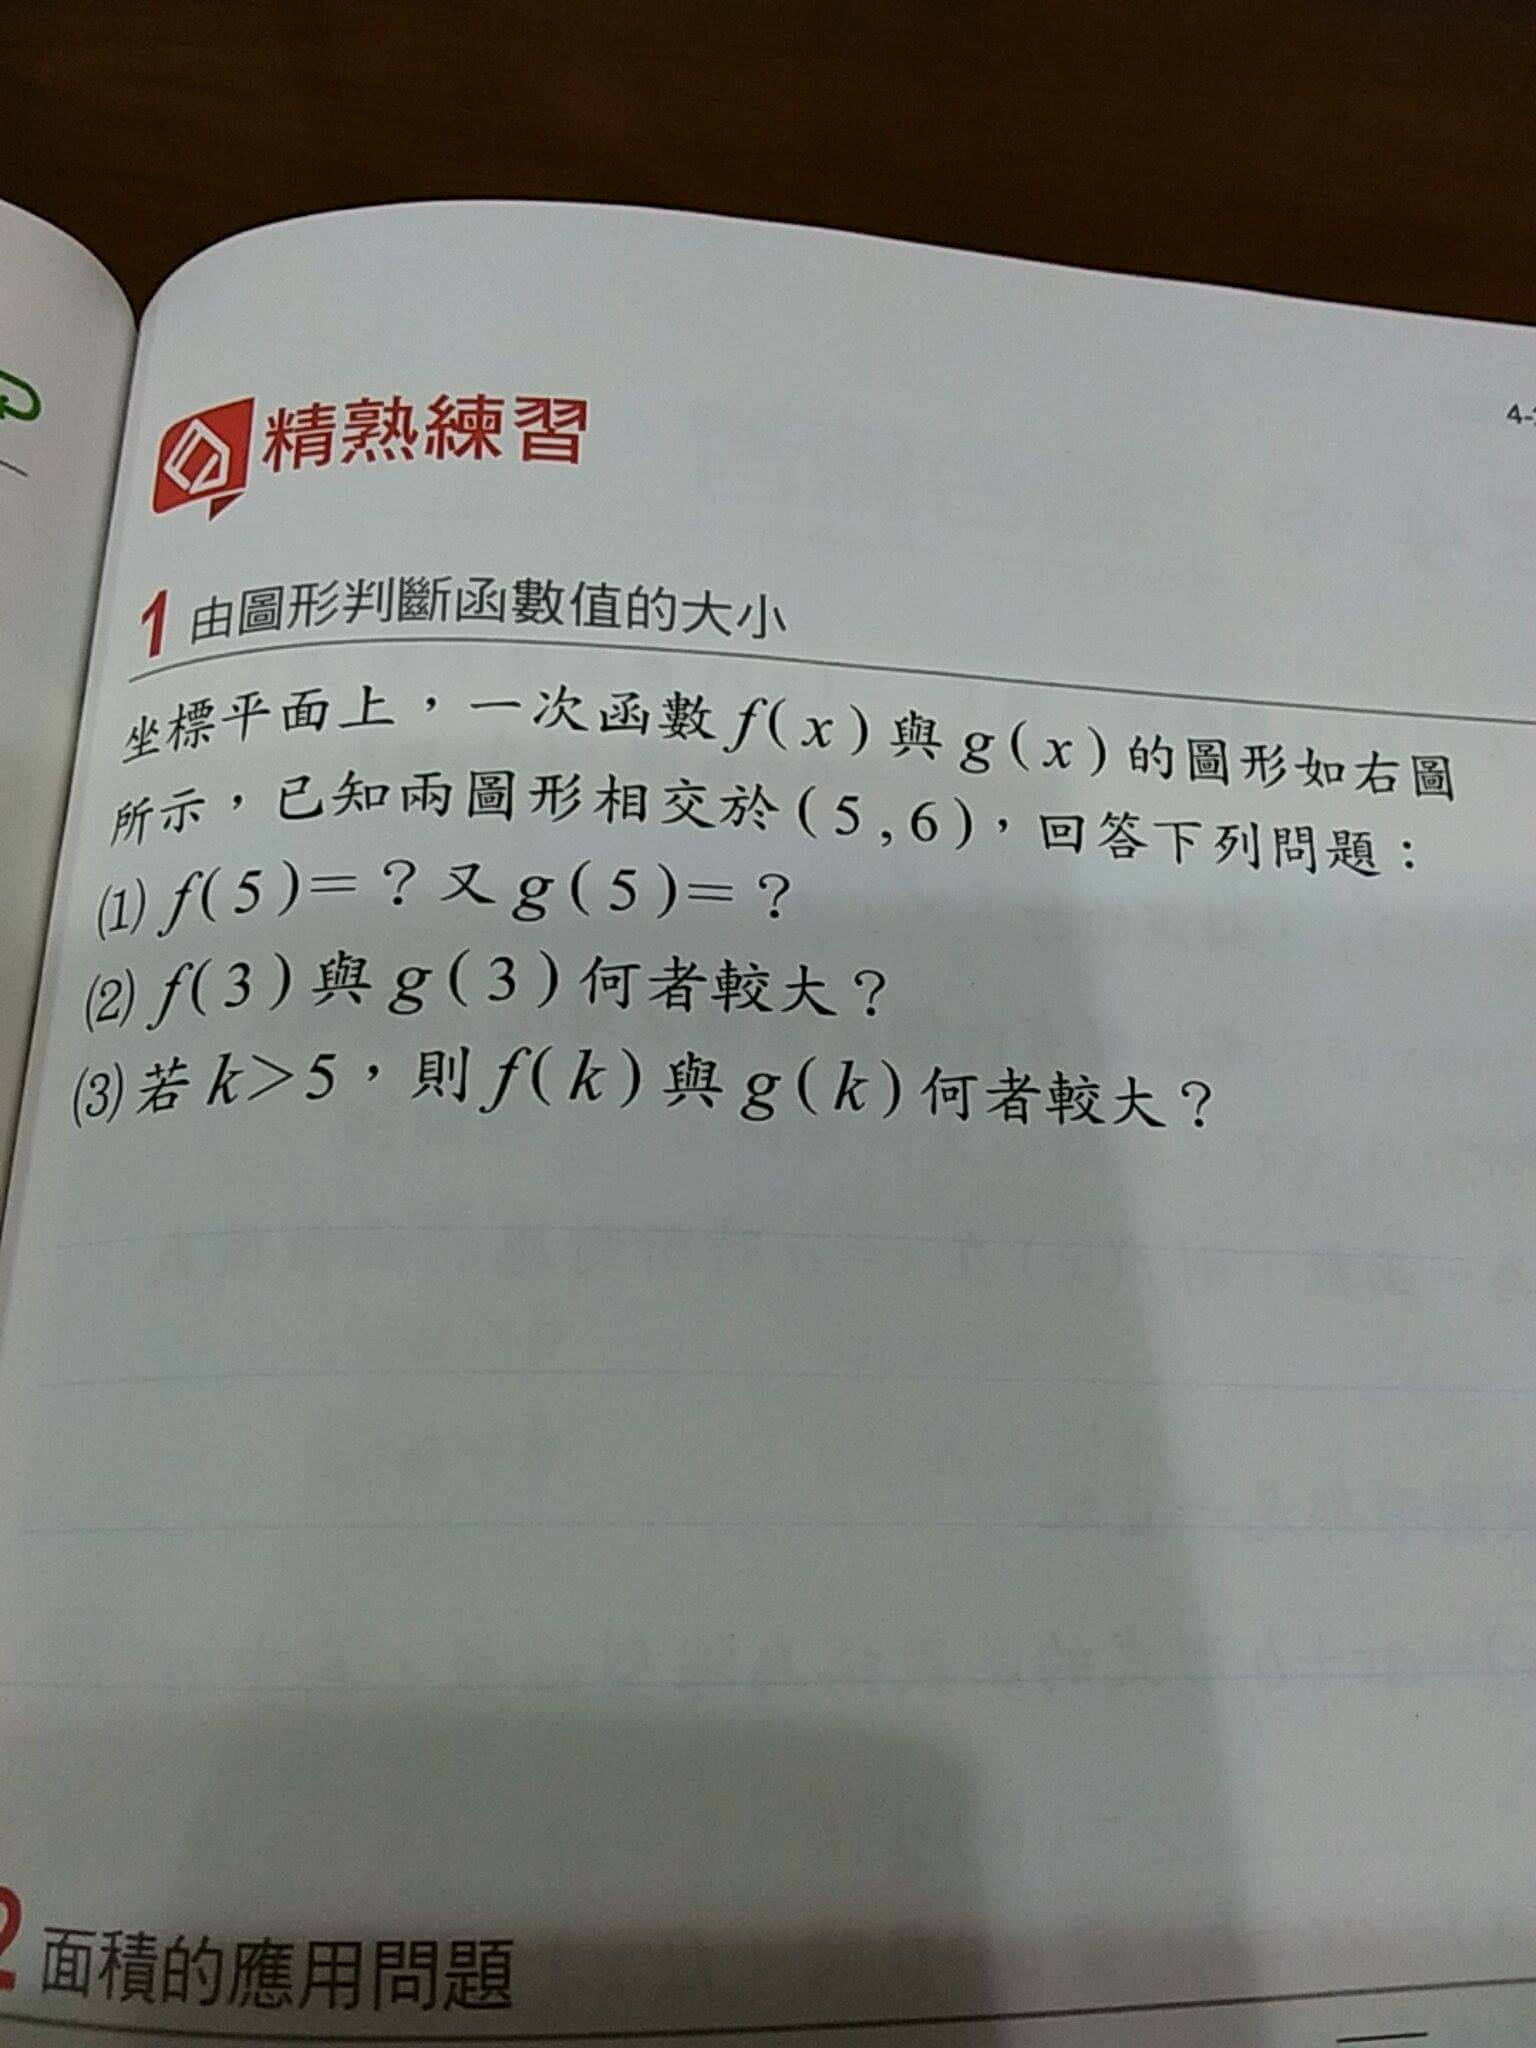 4-
精熟練習
1 由圖形判斷函數值的大小
坐標平面上，一次函數 f(x) 與 g(x) 的圖形如右圖
所示，已知兩圖形相交於 (5,6)，回答下列問題：
(1) f(5)=？又 g(5)=？
(2) f(3) 與 g(3) 何者較大？
(3) 若 k>5，則 f(k) 與 g(k) 何者較大？
2 面積的應用問題